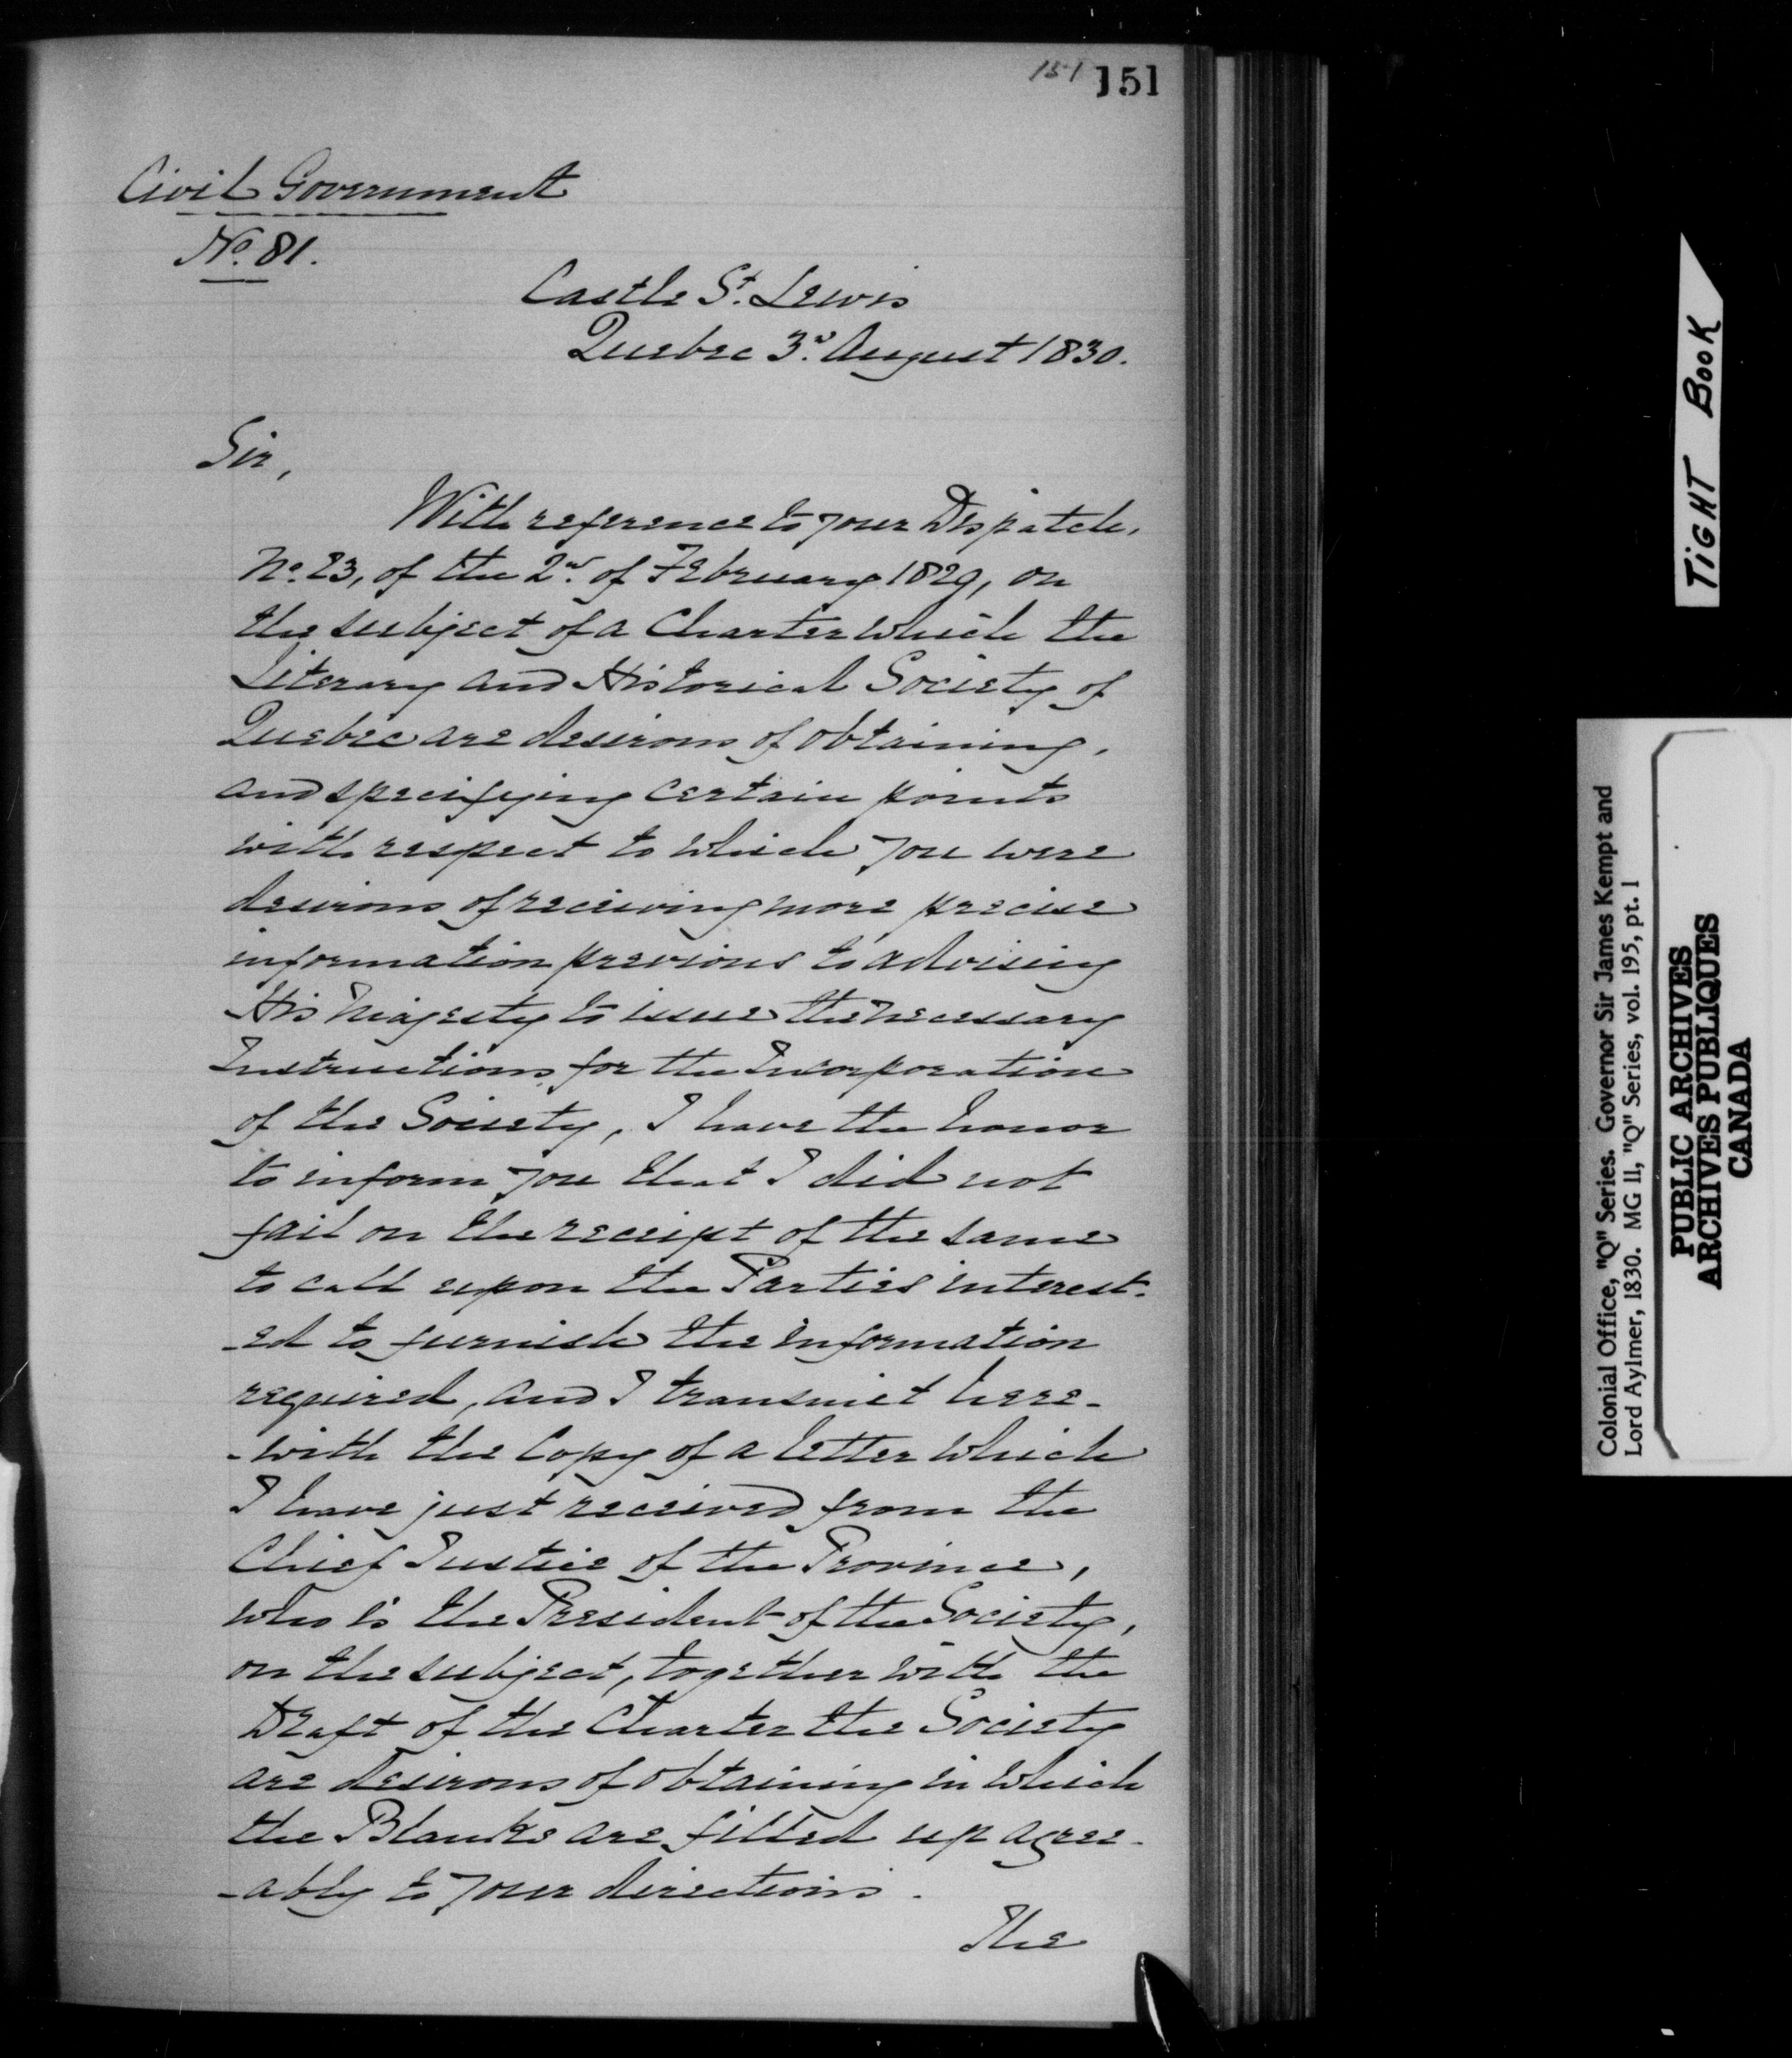 151 151
Civil Government
No. 81.
Castle St. Lewis
Quebec 3d. August 1830.
Sir,
With reference to your Dispatch,
No. 23, of the 2nd. of February 1829, on
the subject of a Charter which the
Literary and Historical Society of
Quebec are desirous of obtaining,
and specifying certain points
with respect to which you were
desirous of receiving more precise
information previous to advising
His Majesty to issue the necessary
Instructions for the Incorporation
of the Society, I have the honor
to inform you that I did not
fail on the receipt of the same
to call upon the Parties interest-
-ed to furnish the information
required, and I transmit here-
-with the Copy of a letter which
I have just received from the
Chief Justice of the Province,
who is the President of the Society,
on the subject, together with the
Draft of the Charter the Society
are desirous of obtaining in which
the Blanks are filled up agree-
-ably to your directions.
The
TIGHT BOOK
Colonial Office, "Q" Series. Governor Sir James Kempt and
Lord Aylmer, 1830. MG 11, "Q" Series, vol. 195, pt. 1
PUBLIC ARCHIVES
ARCHIVES PUBLIQUES
CANADA